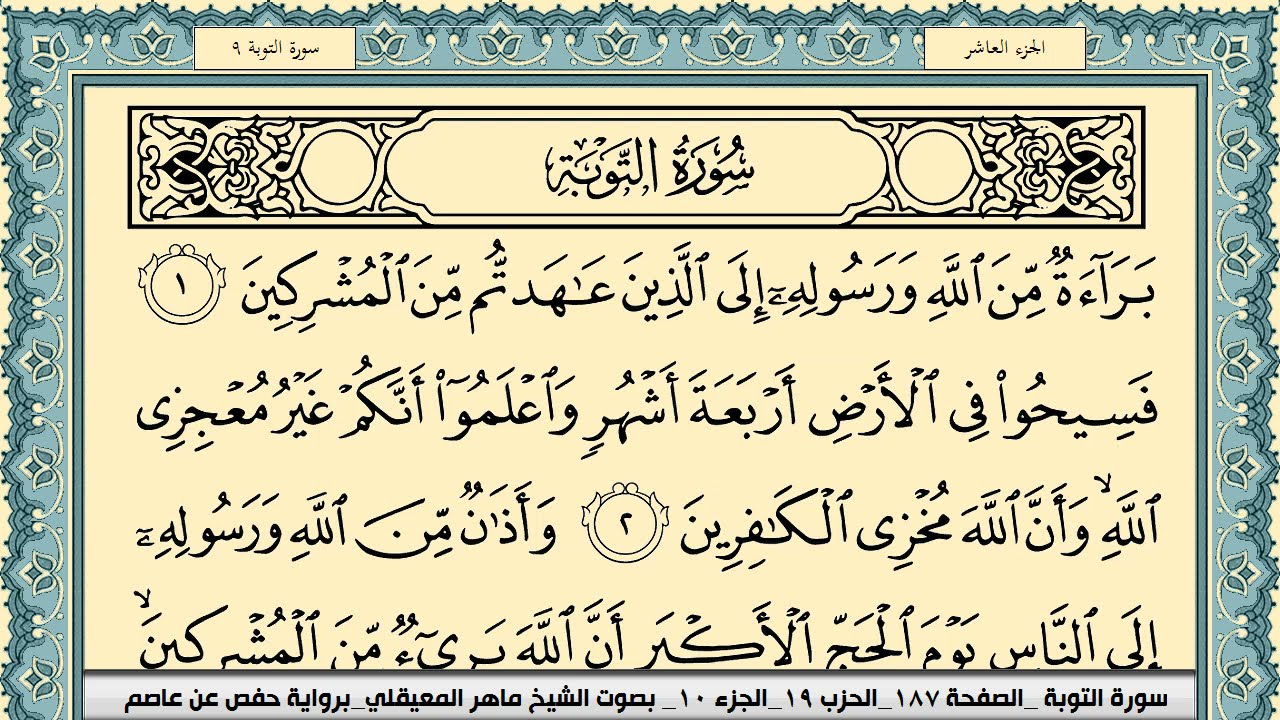 الجزء العاشر
سورة التوبة ٩
سُورَةُ التَّوْبَةِ
بَرَآءَةٌ مِّنَ ٱللَّهِ وَرَسُولِهِۦٓ إِلَى ٱلَّذِينَ عَـٰهَدتُّم مِّنَ ٱلْمُشْرِكِينَ ١
فَسِيحُوا۟ فِى ٱلْأَرْضِ أَرْبَعَةَ أَشْهُرٍ وَٱعْلَمُوٓا۟ أَنَّكُمْ غَيْرُ مُعْجِزِى
ٱللَّهِ ۙ وَأَنَّ ٱللَّهَ مُخْزِى ٱلْكَـٰفِرِينَ ٢ وَأَذَٰنٌ مِّنَ ٱللَّهِ وَرَسُولِهِۦٓ
إِلَى ٱلنَّاسِ يَوْمَ ٱلْحَجِّ ٱلْأَكْبَرِ أَنَّ ٱللَّهَ بَرِىٓءٌ مِّنَ ٱلْمُشْرِكِينَ ۙ
سورة التوبة _الصفحة ١٨٧_الحزب ١٩_الجزء ١٠_ بصوت الشيخ ماهر المعيقلي_برواية حفص عن عاصم